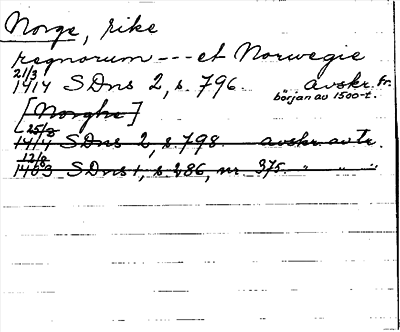 Norge, rike
regnorum --- et Norwegie
21/3 1414 SDns 2, s. 796. avskr. fr.
början av 1500-t.
[Norghe]
25/8 1414 SDns 2, s. 798. avskr. av tr.
12/8 1403 SDns 1, s. 286, nr. 375. " " "